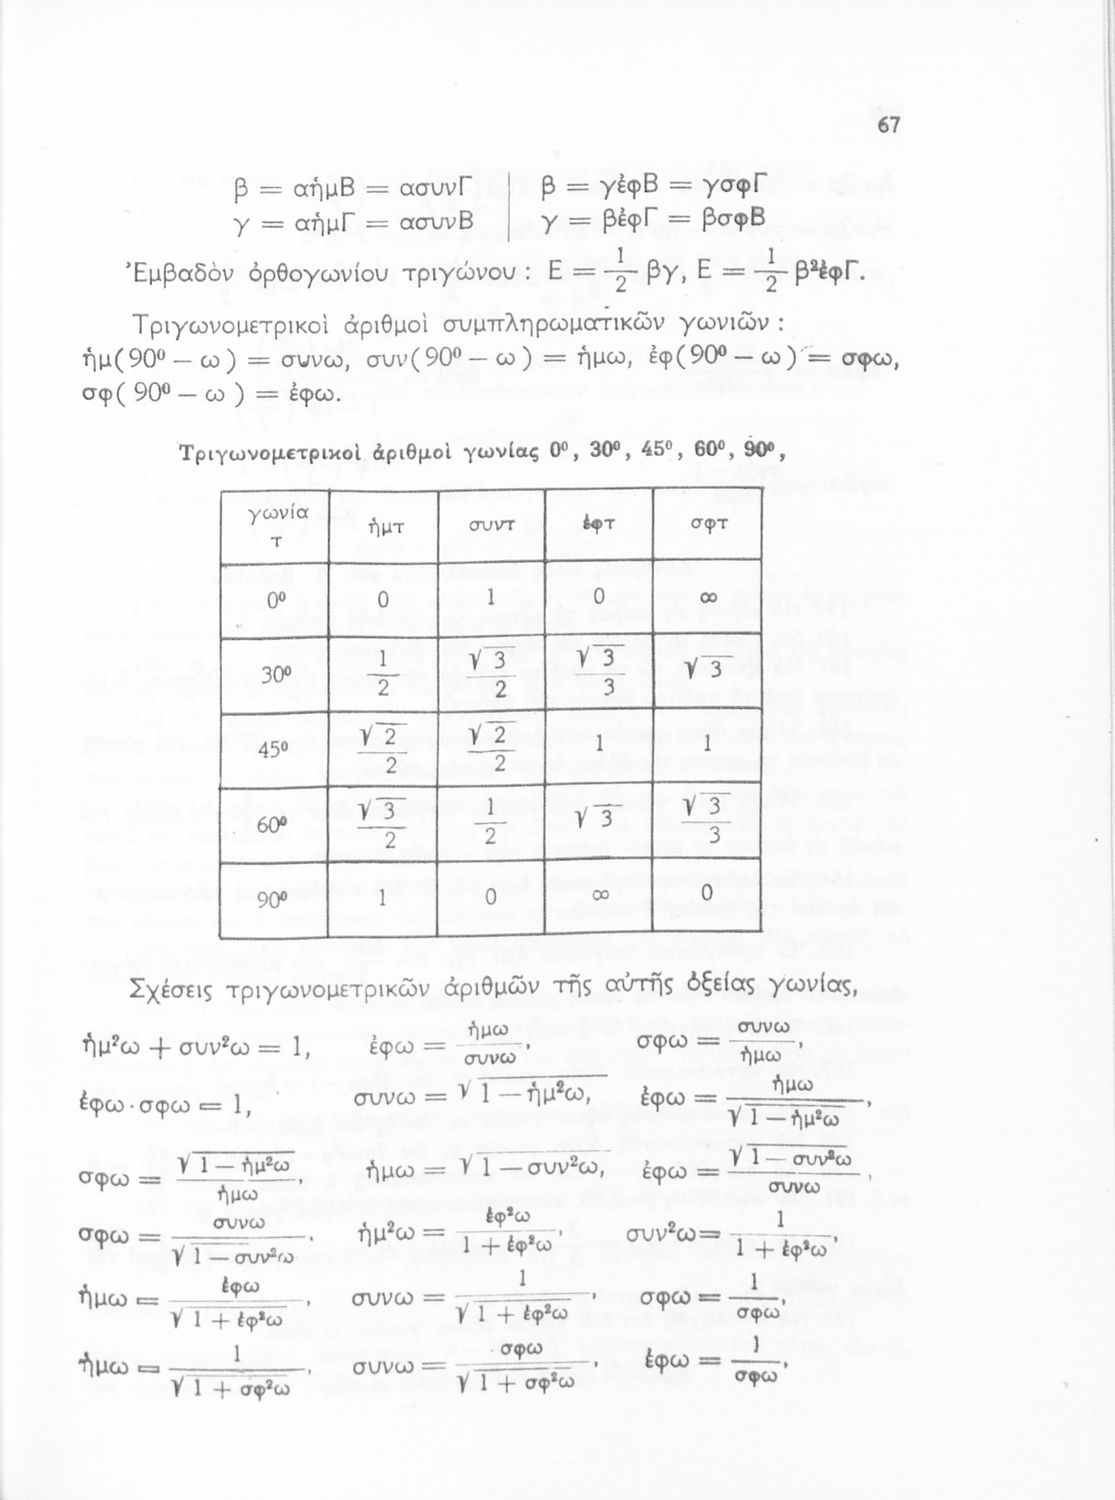 67
β = αἡμΒ = ασυνΓ | β = γἐφΒ = γσφΓ
γ = αἡμΓ = ασυνΒ | γ = βἐφΓ = βσφΒ
Ἐμβαδὸν ὀρθογωνίου τριγώνου : Ε = 1/2 βγ, Ε = 1/2 β²ἐφΓ.
Τριγωνομετρικοὶ ἀριθμοὶ συμπληρωματικῶν γωνιῶν :
ἡμ(90⁰ — ω) = συνω, συν(90⁰ — ω) = ἡμω, ἐφ(90⁰ — ω) = σφω,
σφ( 90⁰ — ω ) = ἐφω.
Τριγωνομετρικοὶ ἀριθμοὶ γωνίας 0⁰, 30⁰, 45⁰, 60⁰, 90⁰,
γωνία τ ἡμτ συντ ἐφτ σφτ
0⁰ 0 1 0 ∞
30⁰ 1/2 √3/2 √3/3 √3
45⁰ √2/2 √2/2 1 1
60⁰ √3/2 1/2 √3 √3/3
90⁰ 1 0 ∞ 0
Σχέσεις τριγωνομετρικῶν ἀριθμῶν τῆς αὐτῆς ὀξείας γωνίας,
ἡμ²ω + συν²ω = 1, ἐφω = ἡμω/συνω, σφω = συνω/ἡμω,
ἐφω·σφω = 1, συνω = √(1 — ἡμ²ω), ἐφω = ἡμω/√(1 — ἡμ²ω),
σφω = √(1 — ἡμ²ω)/ἡμω, ἡμω = √(1 — συν²ω), ἐφω = √(1 — συν²ω)/συνω,
σφω = συνω/√(1 — συν²ω), ἡμ²ω = ἐφ²ω/(1 + ἐφ²ω), συν²ω = 1/(1 + ἐφ²ω),
ἡμω = ἐφω/√(1 + ἐφ²ω), συνω = 1/√(1 + ἐφ²ω), σφω = 1/σφω,
ἡμω = 1/√(1 + σφ²ω), συνω = σφω/√(1 + σφ²ω), ἐφω = 1/σφω,